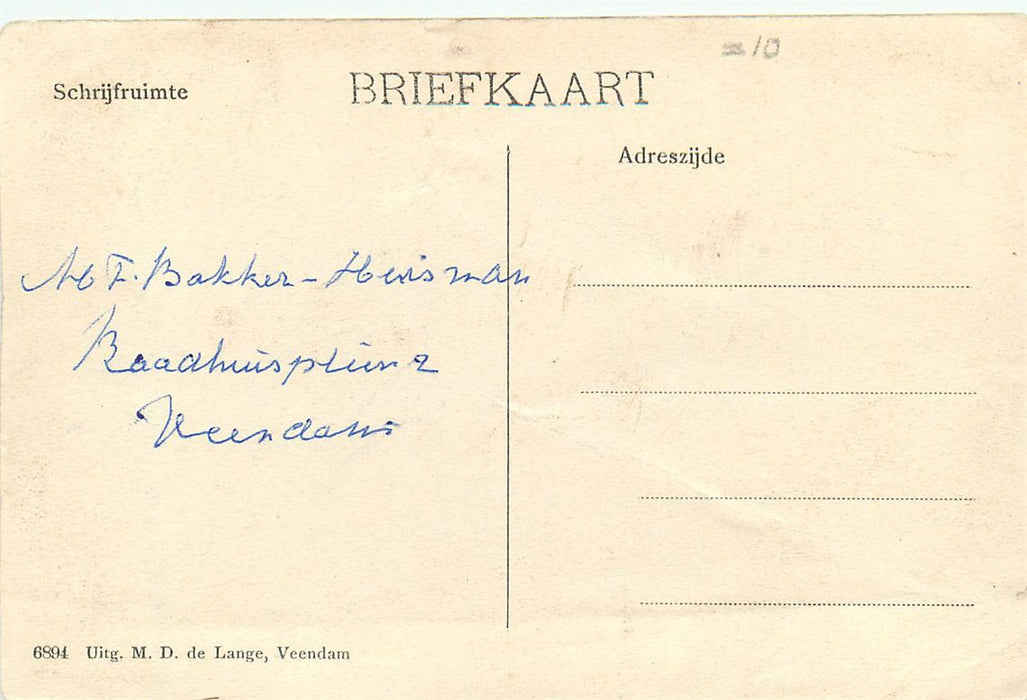 =10
Schrijfruimte
BRIEFKAART
Adreszijde
M F. Bakker-Huisman
Raadhuisplein 2
Veendam
6894 Uitg. M. D. de Lange, Veendam